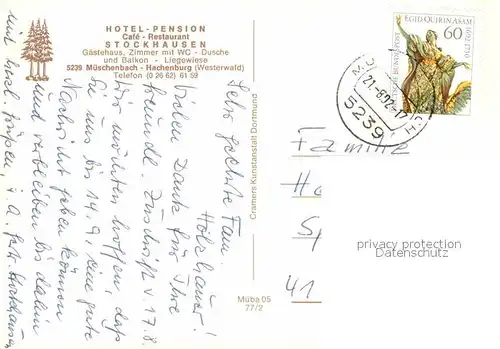 HOTEL-PENSION
Café - Restaurant
STOCKHAUSEN
Gästehaus, Zimmer mit WC - Dusche
und Balkon - Liegewiese
5239 Müschenbach - Hachenburg (Westerwald)
Telefon (0 26 62) 61 59
Sehr geehrte Fam.
Holzhauer!
Vielen Dank für Ihre
freundl. Zuschrift v. 17.8.
Wir möchten hoffen, daß
Sie uns bis 14.9. eine gute
Nachricht geben können
und verbleiben bis dahin
mit herzl. Grüßen, i. A. Stockhausen
Cramers Kunstanstalt Dortmund
Müba 05
77/2
EGID QUIRIN ASAM
1692 1750
60
DEUTSCHE BUNDESPOST
5239
Familie
Ho
Sp
41
privacy protection
Datenschutz